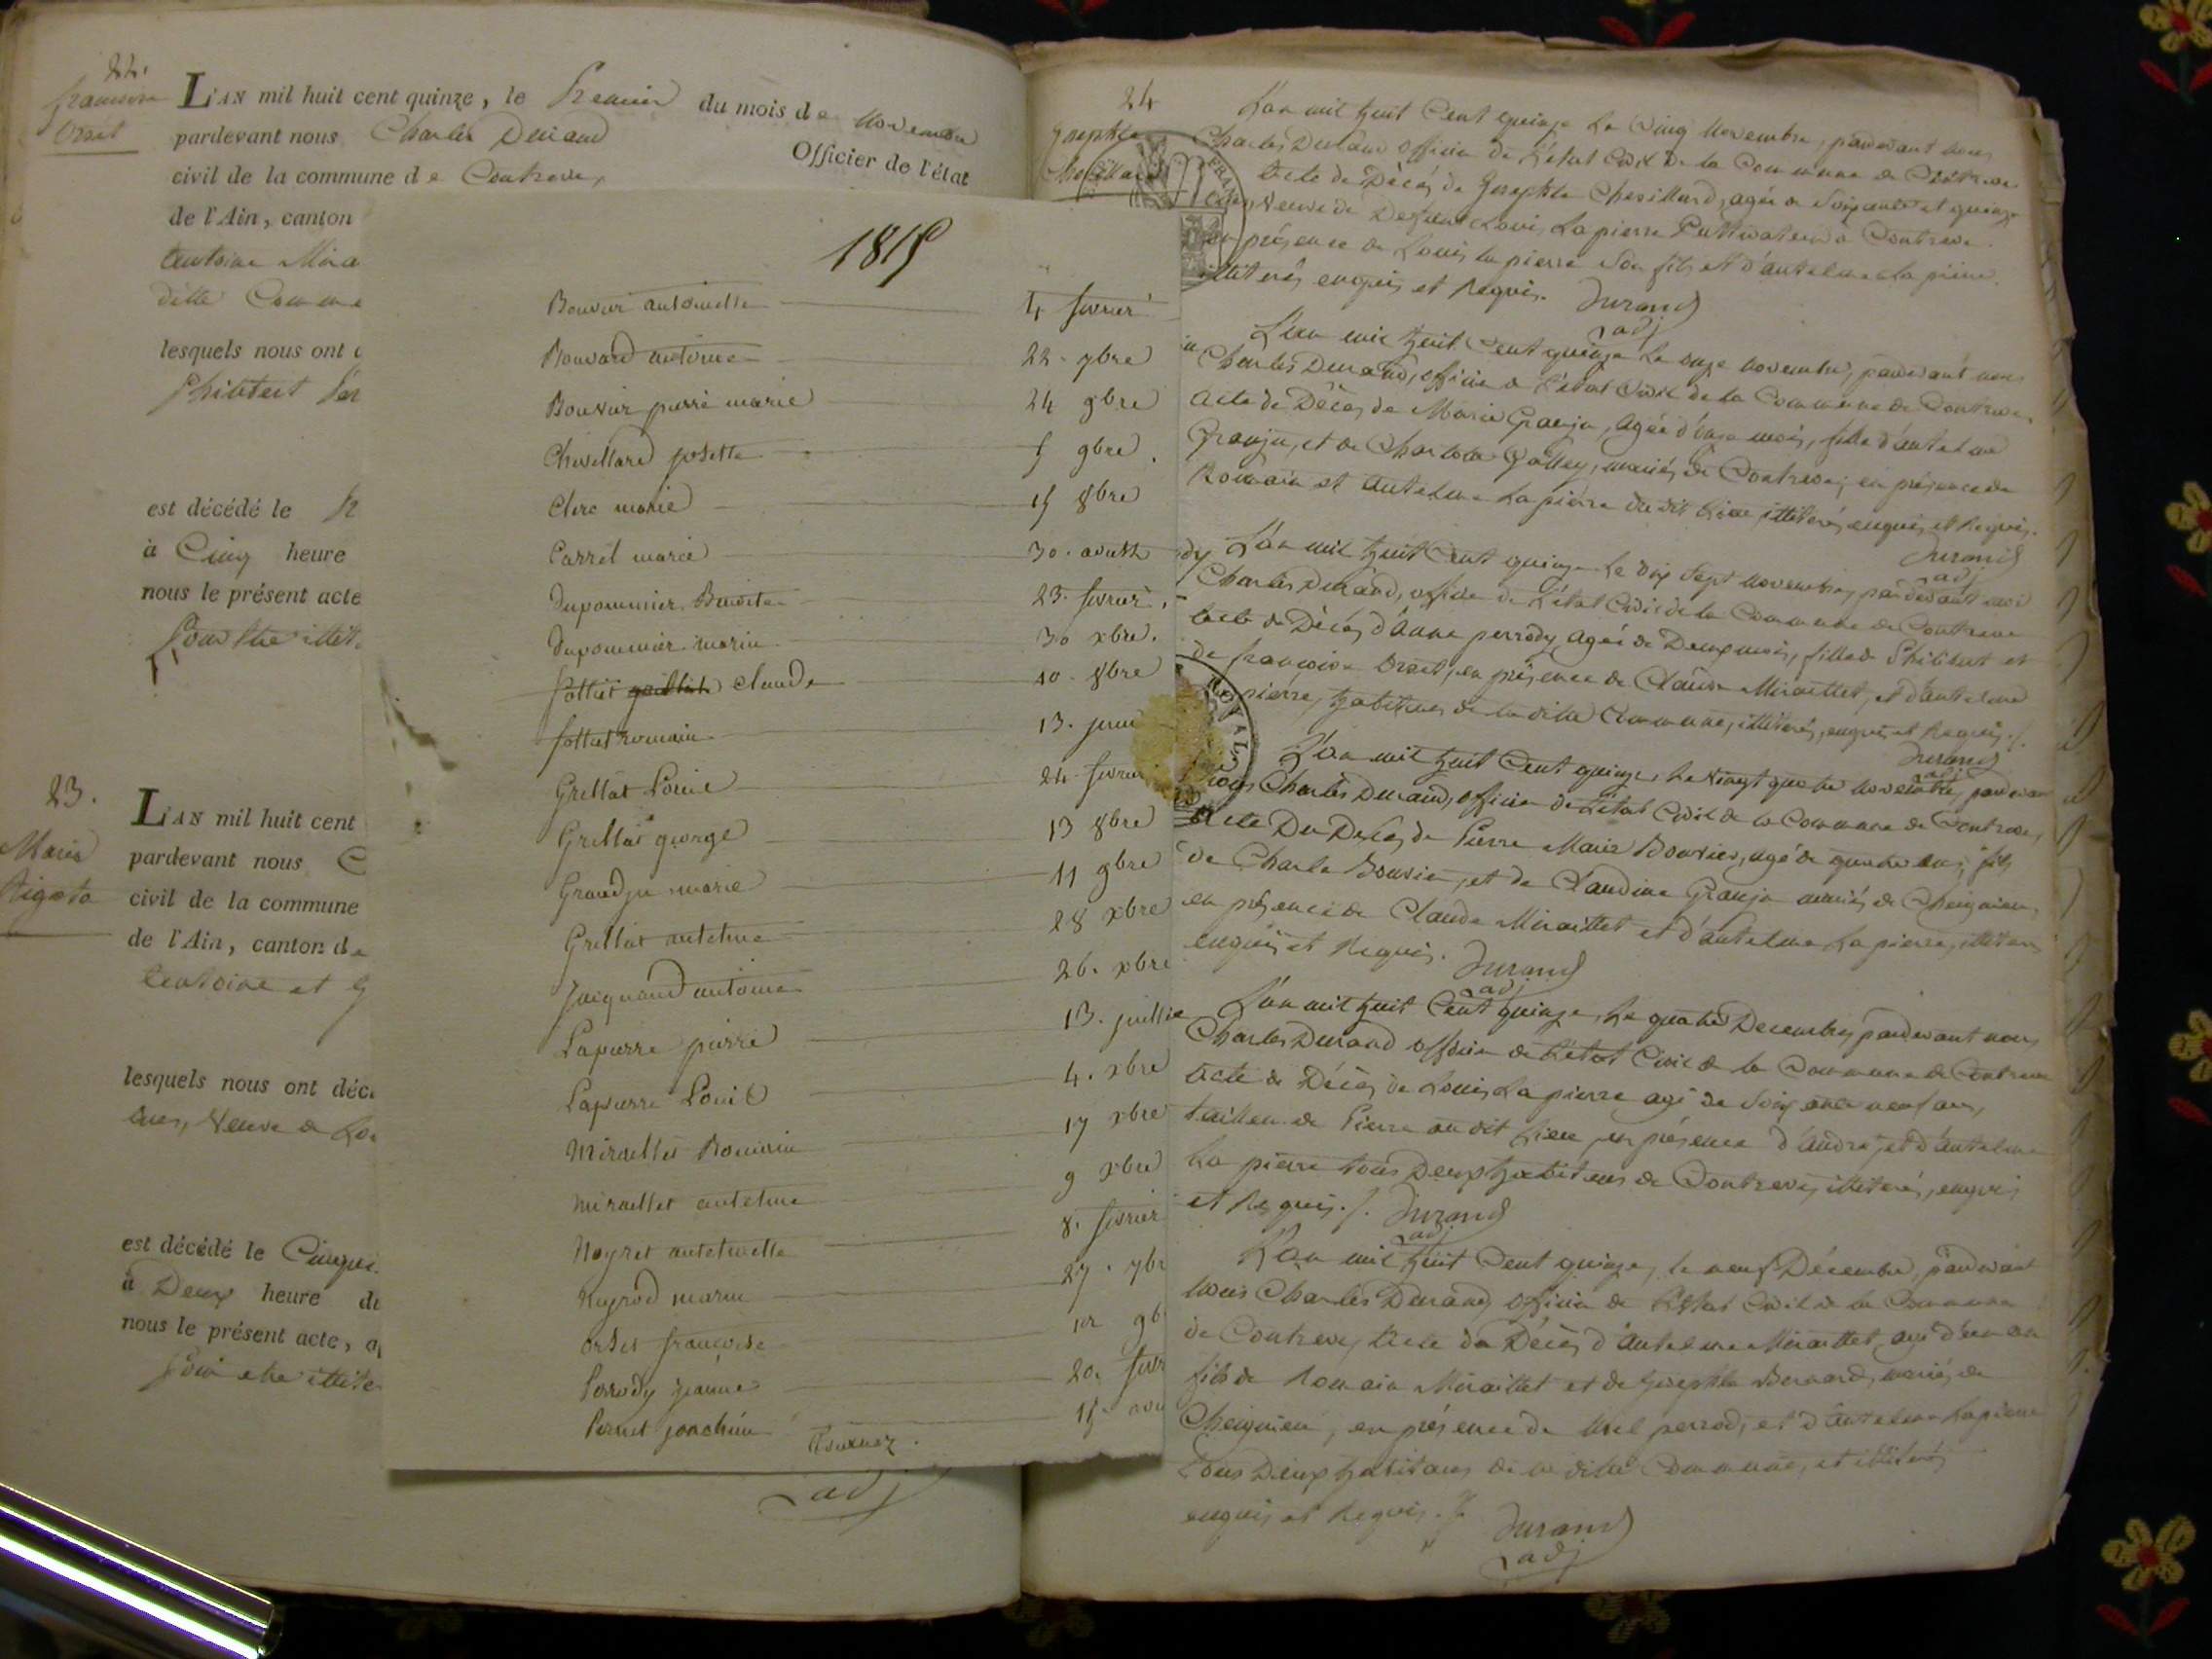 22.
françoise
Orset
L'AN mil huit cent quinze, le Premier du mois de Novembre
pardevant nous Charles Durand Officier de l'état
civil de la commune de Contrevoz
de l'Ain, canton
antoine Mira
ditte Comme
lesquels nous ont
Philibert
est décédé le
à Cinq heure
nous le présent acte
23.
Marie
L'AN mil huit cent
pardevant nous C
civil de la commune
de l'Ain, canton de
antoine et
lesquels nous ont déc
ans, Veuve de
est décédé le Cinqui
à Deux heure du
nous le présent acte,
adj
1815
Bouvier antoinette 4 fevrier
Bouvard antoine 22. 7bre
Bouvier pierre marie 24 9bre
Chevillard josette 5 9bre.
Clerc marie 15 8bre
Carrel marie 30. aoust
Dupommier Benoite 23. fevrier.
Dupommier marie 30 xbre.
fottiet claude 10. 8bre
fottiet romain 13. juin
Grillat Louise 24 fevrier
Grillat george 13 8bre
Grandju marie 11 9bre
Grillat antelme 28 xbre
Juignand antoine 26. xbre
Lapierre pierre 13. juillie
Lapierre Louis 4. xbre
Miraillet Romain 17 xbre
Miraillet antelme 9 xbre
Noyret antelmette 8. fevrier
Neyrod marie 27. 7br
Orset françoise 1er 9b
Perrody jeanne 20. fevr
Pernet joachim 15
24
Josephte
Chevillard
L'an mil huit Cent quinze Le Cinq Novembre, pardevant nous
Charles Durand officier de L'état Civil de la Commune de Contrevoz
Acte de Décès de Josephte Chevillard, agée de Soixante et quinze
ans, Veuve de Defunt Louis Lapierre Cultivateur à Contrevoz
en présence de Louis Lapierre Son fils et d'antelme Lapierre
illiterés enquis et Requis. Durand
adj
L'an mil huit Cent quinze Le onze Novembre, pardevant nous
Charles Durand, officier de L'état Civil de la Commune de Contrevoz
Acte de Décès de Marie Granju, Agée d'onze mois, fille d'antelme
Granju, et de Charlotte Golley, mariés de Contrevoz, en présence de
Romain et Antelme Lapierre du dit Lieu illiterés, enquis et Requis.
Durand
adj
L'an mil huit Cent quinze Le dix Sept Novembre, pardevant nous
Charles Durand, officier de L'état Civil de la Commune de Contrevoz
acte de Décès d'Anne perrody, agée de Deux mois, fille de Philibert et
de françoise Orset, en présence de Claude Miraillet, et d'antelme
Lapierre, habitans de la ditte Commune, illiterés, enquis et Requis.
Durand
adj
L'an mil huit Cent quinze, Le Vingt quatre Novembre, pardevant
Nous Charles Durand, officier de L'état Civil de la Commune de Contrevoz,
Acte Du Décès de Pierre Marie Bouvier, agé de quatre ans, fils
de Charle Bouvier, et de Claudine Granju mariés de Cheignieu,
en présence de Claude Miraillet et d'antelme Lapierre, illiterés
enquis et Requis. Durand
adj
L'an mil huit Cent quinze, Le quatre Decembre, pardevant nous
Charles Durand officier de L'état Civil de la Commune de Contrevoz
Acte de Décès de Louis Lapierre agé de Soixante neuf ans,
tailleur de Pierre au dit Lieu, en présence d'andré, et d'antelme
Lapierre tous Deux habitans de Contrevoz, illiterés, enquis
et Requis. Durand
adj
L'an mil huit Cent quinze, le neuf Décembre, pardevant
Nous Charles Durand, officier de L'état Civil de la Commune
de Contrevoz, Acte du Décès d'antelme Miraillet, agé d'un an
fils de Romain Miraillet et de Josephte Bovard, mariés de
Cheignieu, en présence de perrod, et d'antelme Lapierre
tous Deux habitans de la ditte Commune, et illiterés
enquis et Requis. Durand
adj